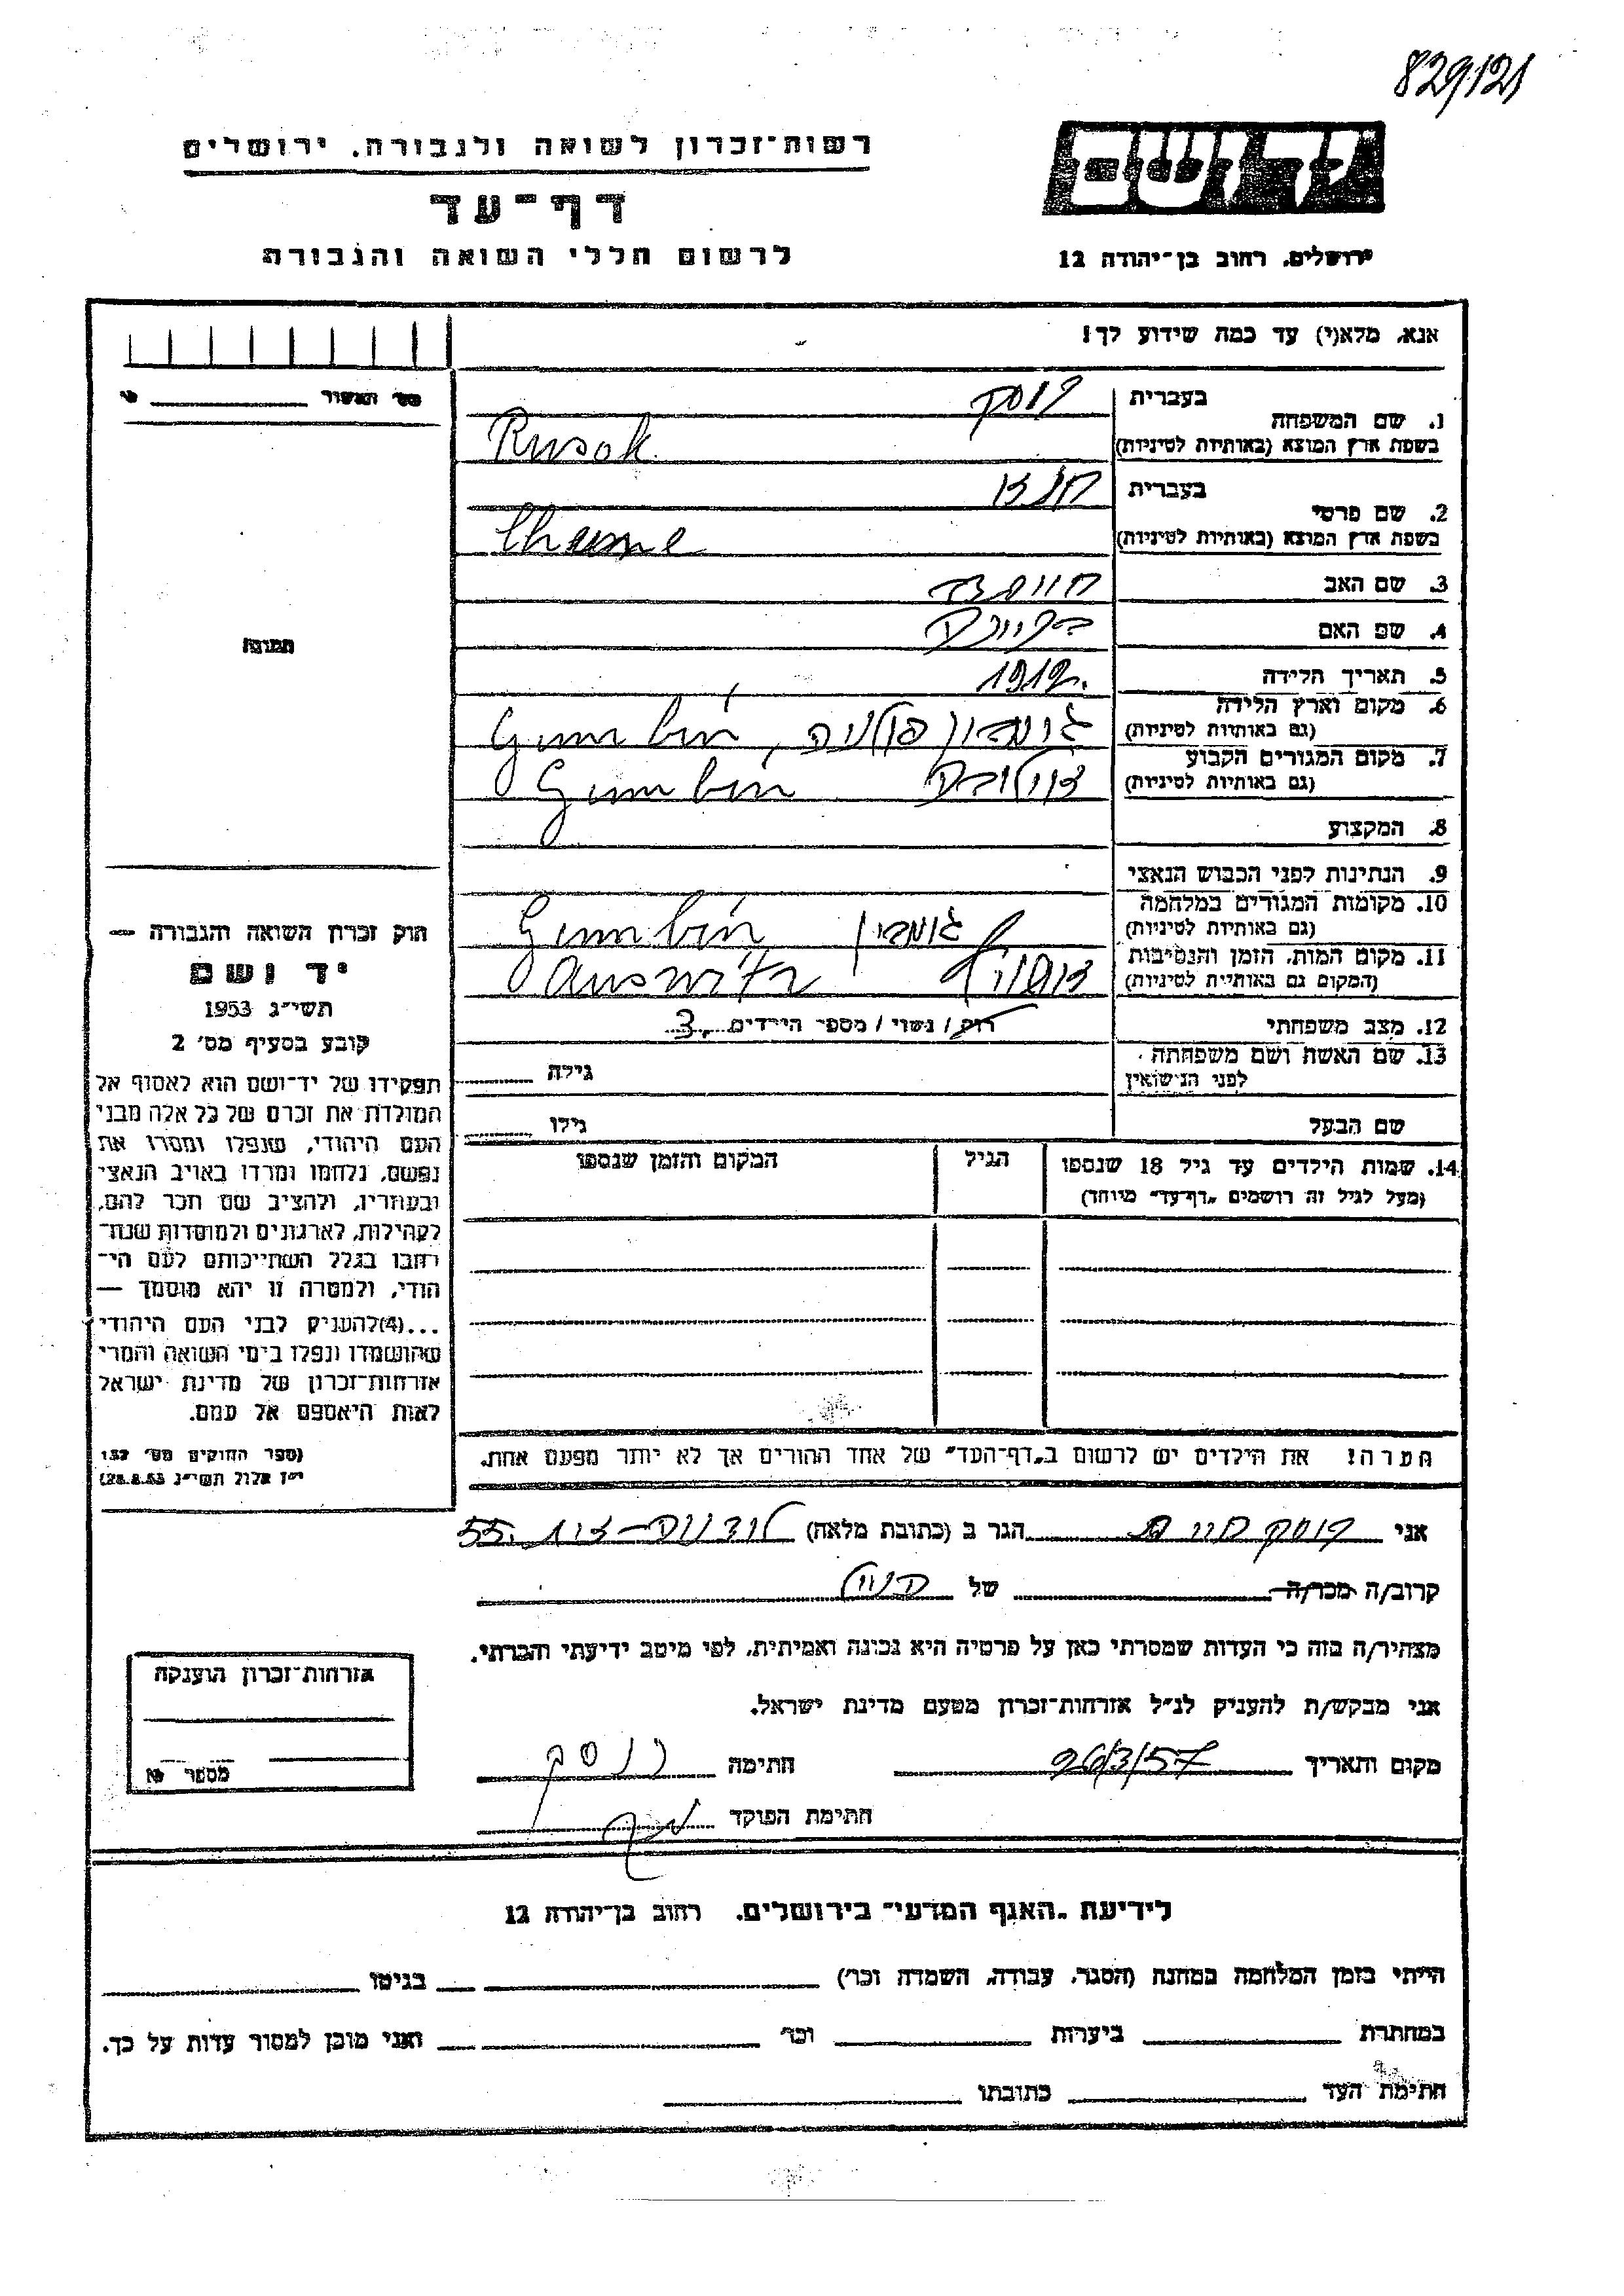 829/121
רשות־זכרון לשואה ולגבורה. ירושלים
דף־עד
לרשום חללי השואה והגבורה
יד ושם
ירושלים. רחוב בן־יהודה 12
אנא, מלא(י) עד כמה שידוע לך!
מס׳ תאשור
1. שם המשפחה
בעברית רוסק
בשפת ארץ המוצא (באותיות לטיניות) Rusak
2. שם פרטי
בעברית חנא
בשפת ארץ המוצא (באותיות לטיניות)
3. שם האב
4. שם האם
5. תאריך הלידה 1912.
6. מקום וארץ הלידה
(גם באותיות לטיניות) גומבין פולניה, Gumbin
7. מקום המגורים הקבוע
(גם באותיות לטיניות) Gumbin
8. המקצוע
9. הנתינות לפני הכבוש הנאצי
10. מקומות המגורים במלחמה
(גם באותיות לטיניות) גומבין Gumbin
11. מקום המות, הזמן והנסיבות
(המקום גם באותיות לטיניות) אושויץ Auswitz
12. מצב משפחתי רוק / נשוי / מספר הילדים 3.
13. שם האשה ושם משפחתה
לפני הנישואין
גילה
שם הבעל
גילו
14. שמות הילדים עד גיל 18 שנספו
(מעל לגיל זה רושמים „דף־עד” מיוחד)
הגיל
המקום והזמן שנספו
הערה! את הילדים יש לרשום ב„דף־העד” של אחד ההורים אך לא יותר מפעם אחת.
תמונה
חוק זכרון השואה והגבורה —
יד ושם
תשי״ג 1953
קובע בסעיף מס׳ 2
תפקידו של יד־ושם הוא לאסוף אל
המולדת את זכרם של כל אלה מבני
העם היהודי, שנפלו ומסרו את
נפשם, נלחמו ומרדו באויב הנאצי
ובעוזריו, ולהציב שם וזכר להם,
לקהילות, לארגונים ולמוסדות שנח־
רבו בגלל השתייכותם לעם הי־
הודי, ולמטרה זו יהא מוסמך —
...(4)להעניק לבני העם היהודי
שהושמדו ונפלו בימי השואה והמרי
אזרחות־זכרון של מדינת ישראל
לאות היאספם אל עמם.
(ספר החוקים מס׳ 132
י״ז אלול תשי״ג 28.8.53)
אני רוסק הגר ב (כתובת מלאה) 55.
קרוב/ה מכר/ה של
מצהיר/ה בזה כי העדות שמסרתי כאן על פרטיה היא נכונה ואמיתית, לפי מיטב ידיעתי והכרתי.
אני מבקש/ת להעניק לנ״ל אזרחות־זכרון מטעם מדינת ישראל.
מקום ותאריך 26/3/57 חתימה רוסק
חתימת הפוקד
אזרחות־זכרון הוענקה
מספר №
לידיעת „האגף המדעי” בירושלים. רחוב בן־יהודה 12
הייתי בזמן המלחמה במחנה (הסגר, עבודה, השמדה וכו׳) בגיטו
במחתרת ביערות וכו׳ ואני מוכן למסור עדות על כך.
חתימת העד כתובתו